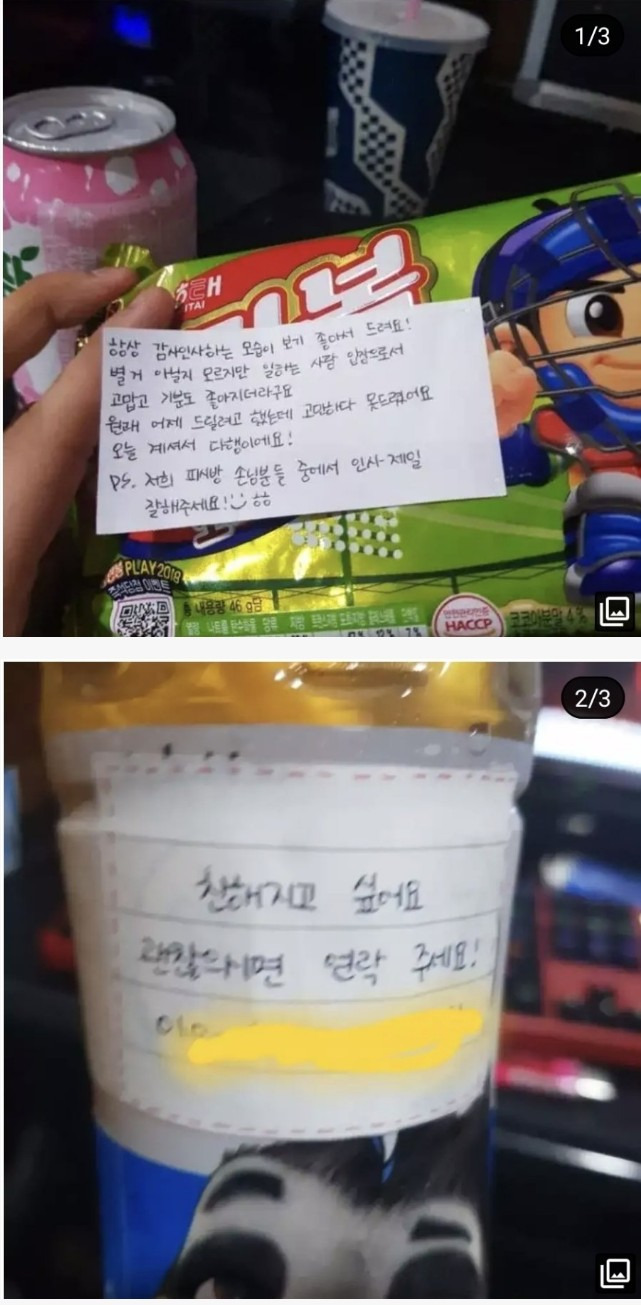 1/3
해태
HAITAI
홈런볼
항상 감사인사하는 모습이 보기 좋아서 드려요!
별 거 아닐지 모르지만 일하는 사람 입장으로서
고맙고 기분도 좋아지더라구요
원래 어제 드릴려고 했는데 고민하다 못드렸어요
오늘 계셔서 다행이에요!
PS. 저희 피시방 손님분들 중에서 인사 제일
잘해주세요! ㅎㅎ
PLAY 2018
총 내용량 46 g
HACCP
2/3
친해지고 싶어요
괜찮으시면 연락 주세요!
010